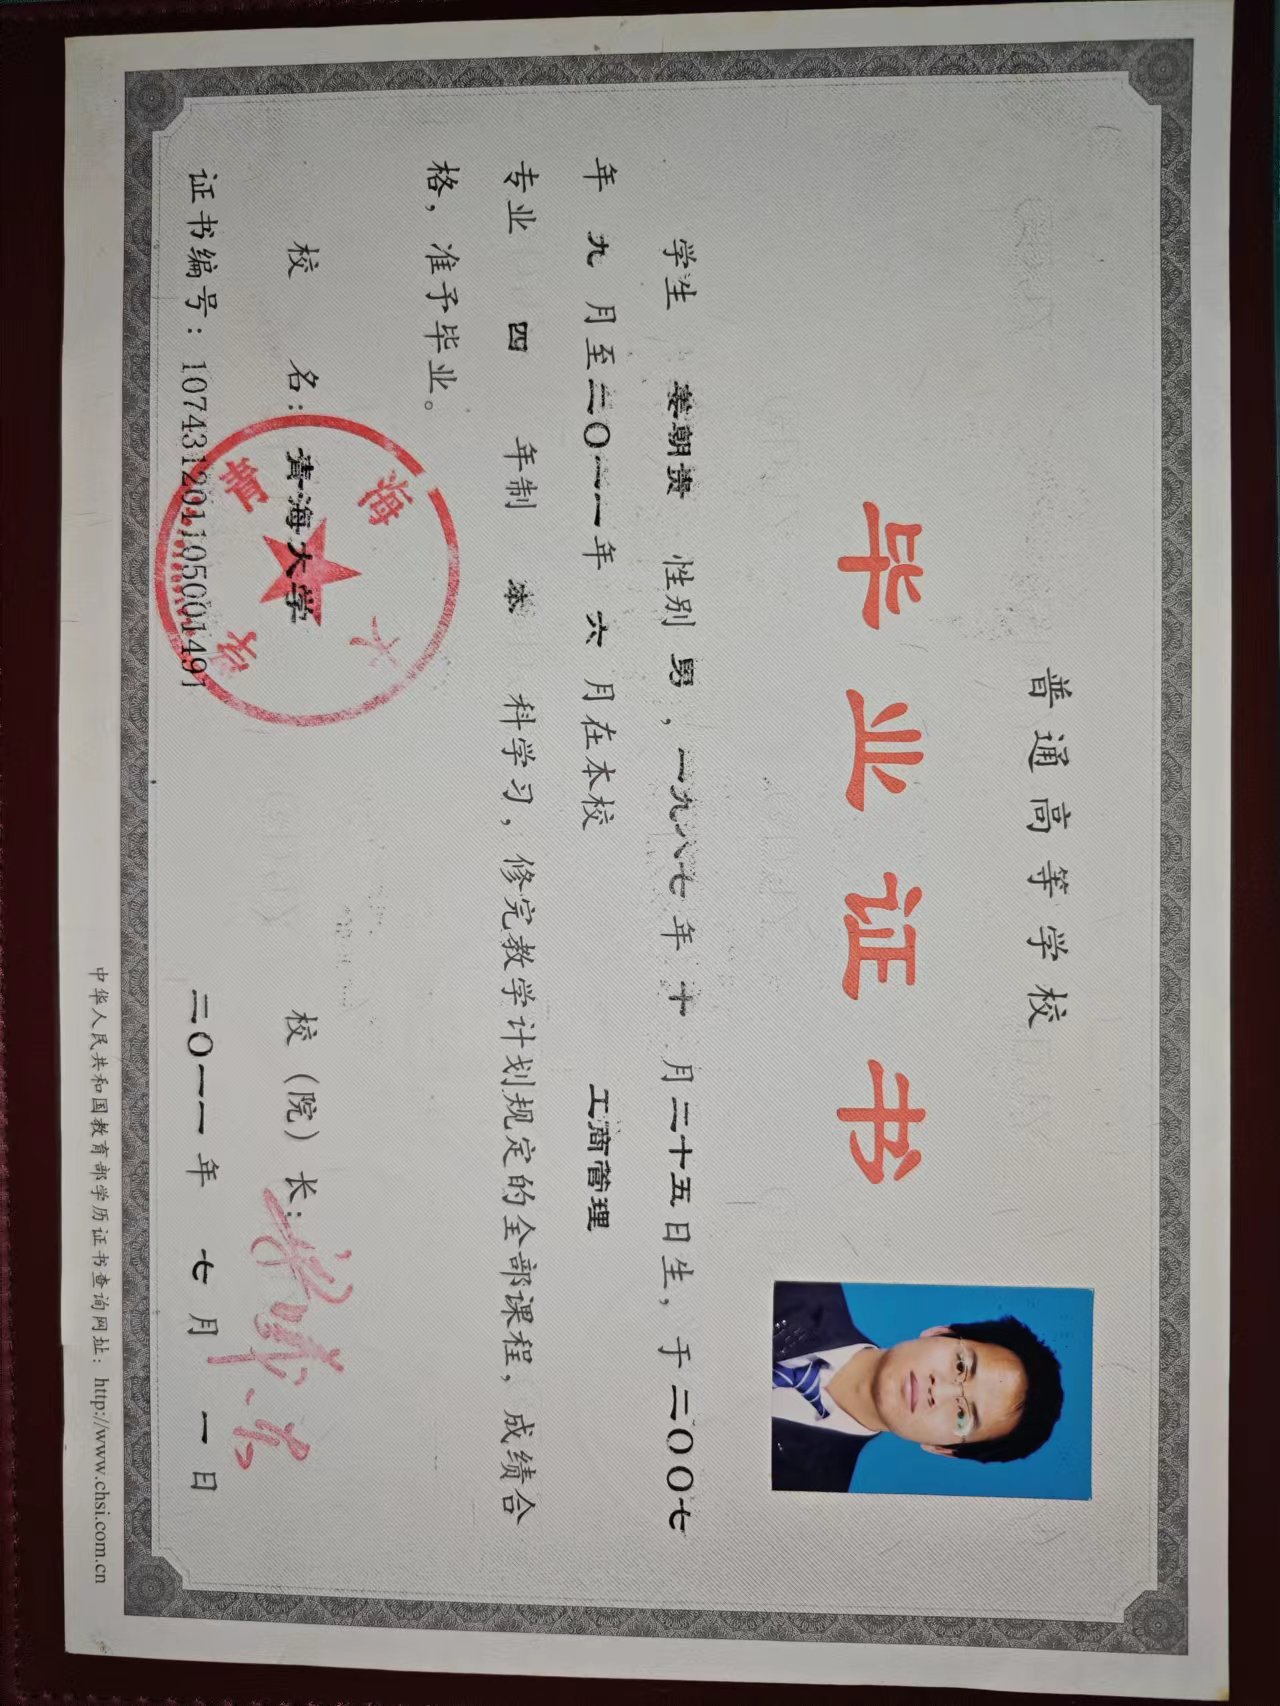 普通高等学校
毕业证书
学生 姜朝贵 性别 男，一九八七年 十 月二十五日生，于二〇〇七
年 九 月至二〇一一年 六 月在本校 工商管理
专业 四 年制 本 科学习，修完教学计划规定的全部课程，成绩合
格，准予毕业。
校 名：青海大学 校（院）长：
青海大学
证书编号：107431201105001491 二〇一一年 七 月 一 日
中华人民共和国教育部学历证书查询网址：http://www.chsi.com.cn